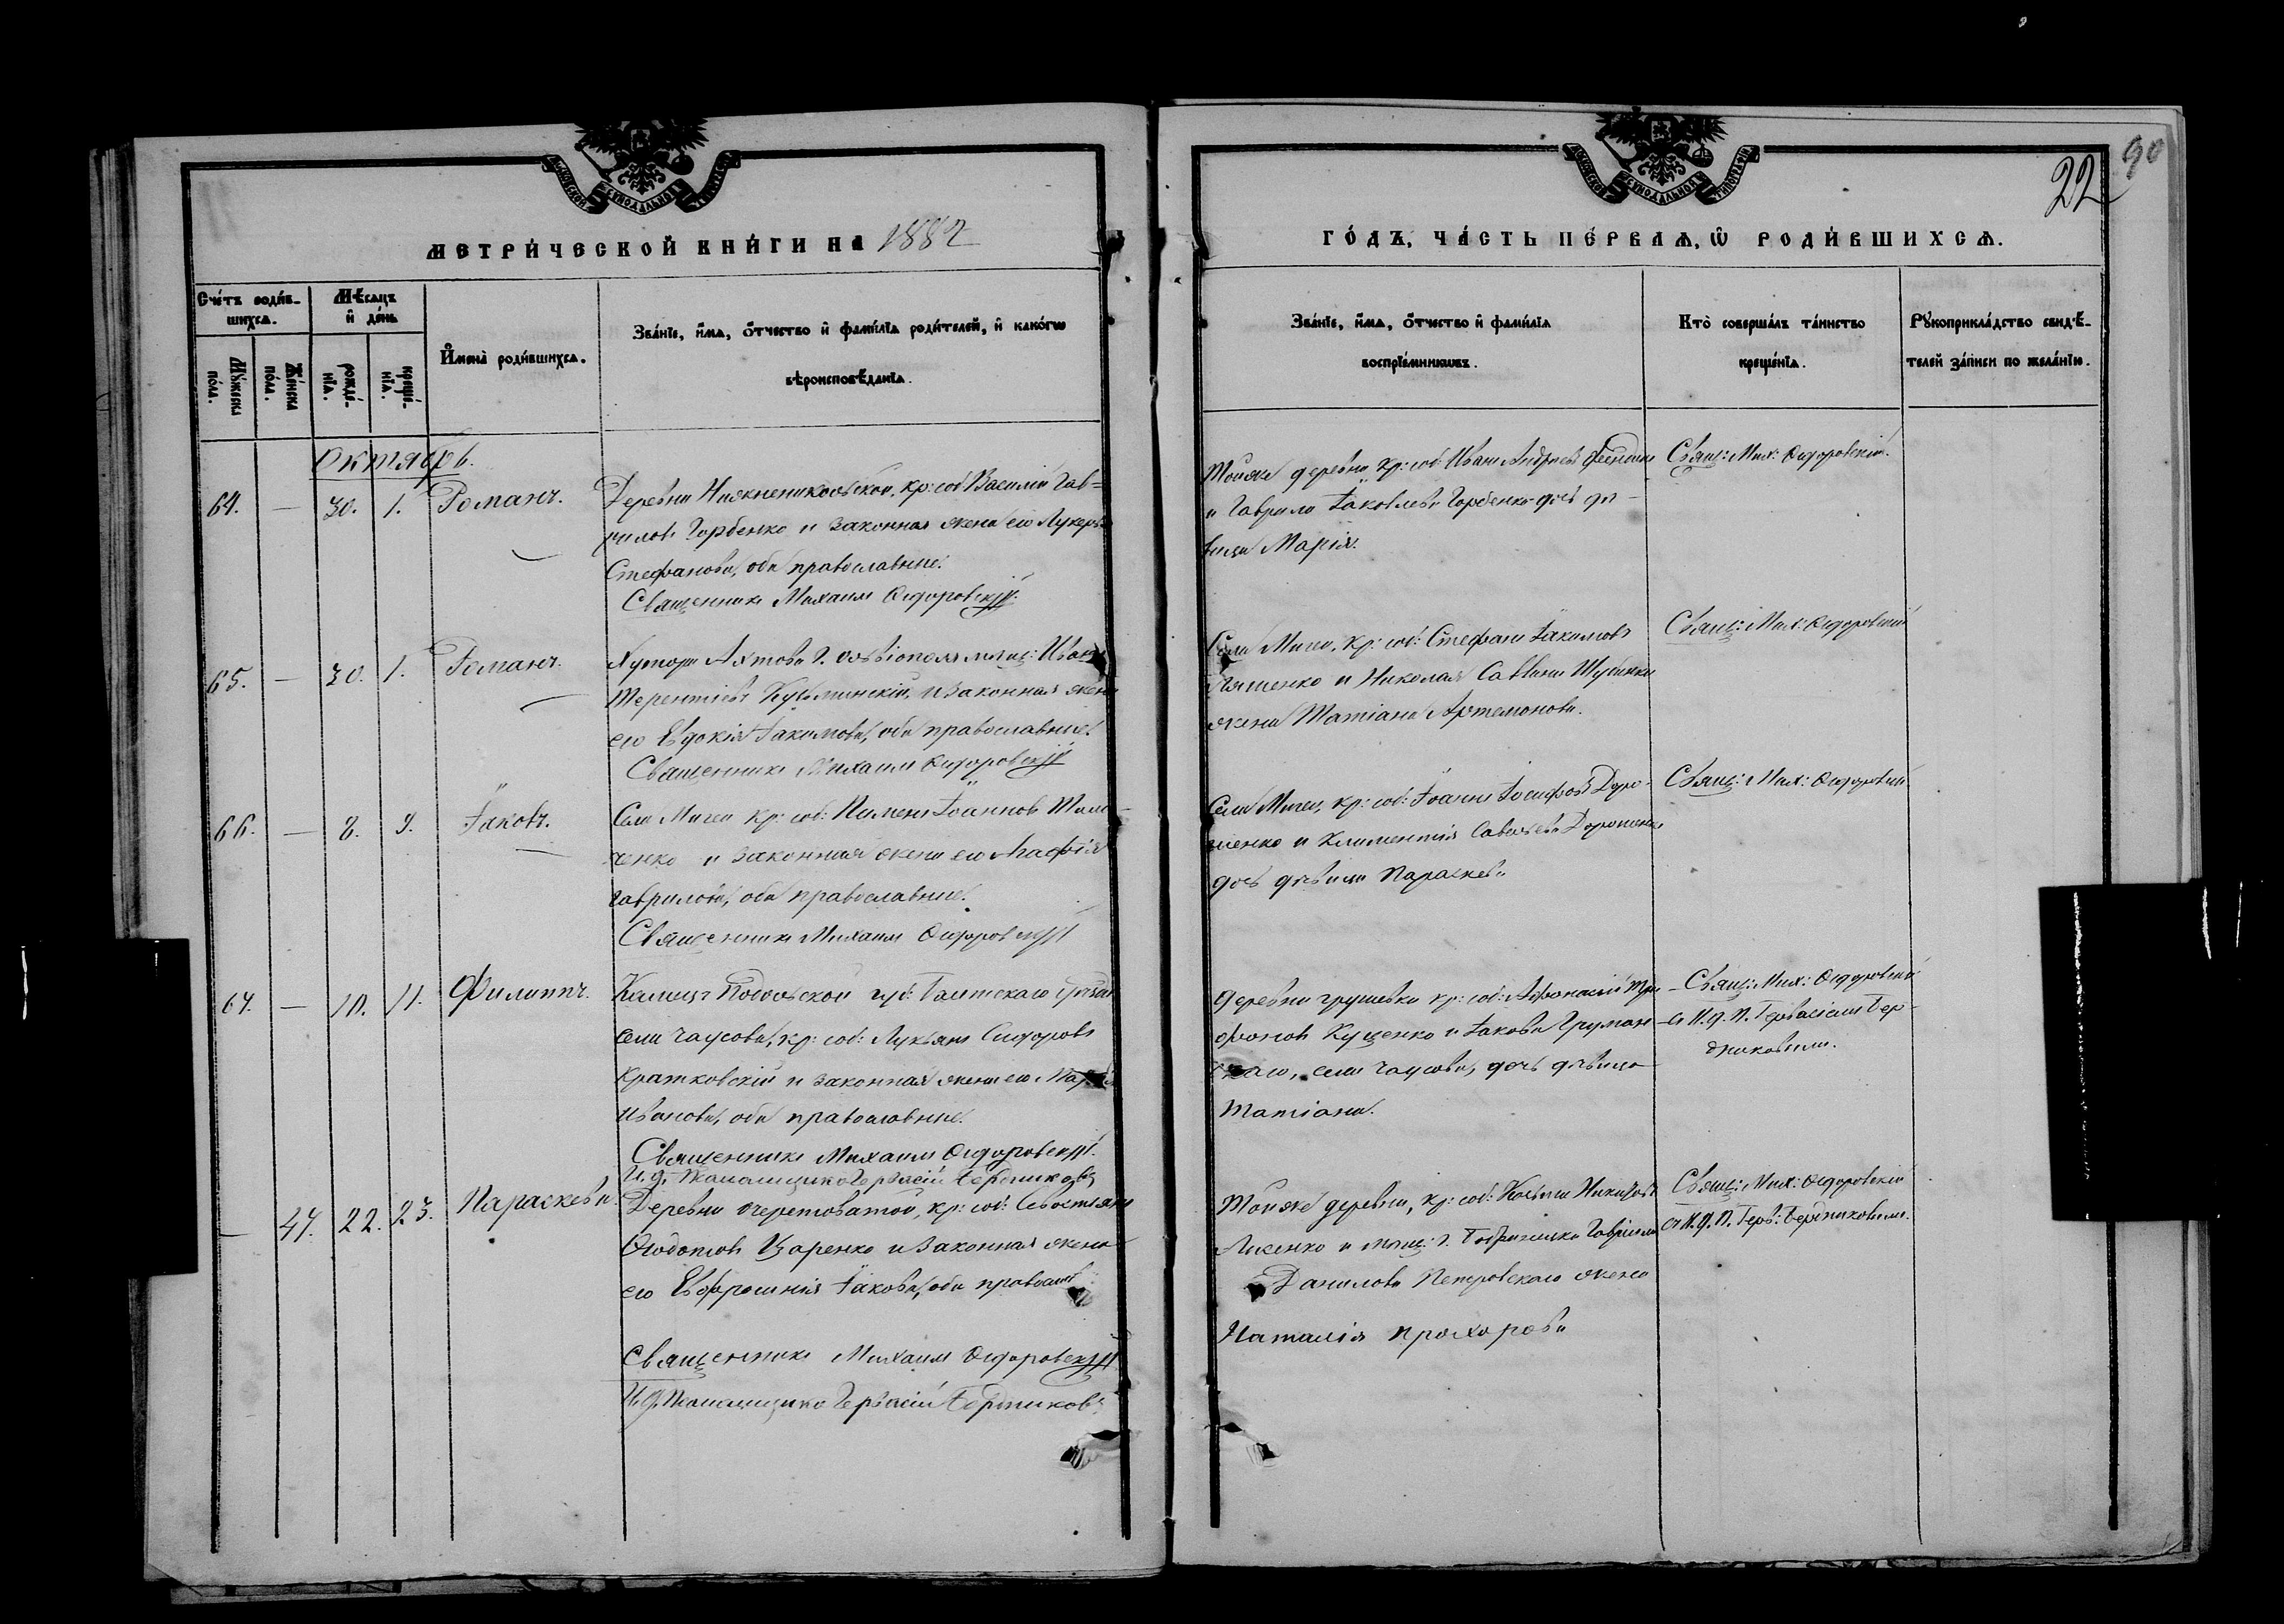 22 90
МЕТРИ́ЧЕСКОЙ КНИ́ГИ НА 1882
ГО́ДЪ, ЧА́СТЬ ПЕ́РВАѦ, Ѡ РОДИ́ВШИХСѦ.
Сче́тъ роди́в-
шихсѧ.
Мѣ́сѧцъ
и҆ де́нь
Мꙋ́жеска
по́ла.
Же́нска
по́ла.
рожде́-
нїѧ.
креще́-
нїѧ.
И҆мена̀ роди́вшихсѧ.
Зва́нїе, и҆́мѧ, о҆́тчество и҆ фами́лїѧ роди́телей, и҆ како́гѡ
вѣроисповѣ́данїѧ.
Зва́нїе, и҆́мѧ, о҆́тчество и҆ фами́лїѧ
воспрїе́мникѡвъ.
Кто̀ соверша́лъ та́инство
креще́нїѧ.
Рꙋкоприкла́дство свидѣ́-
телей за́писи по жела́нїю.
Октябрь.
64. — 30. 1. Романъ.
Деревни кр: соб: Василій Гав-
риловъ Горбенко и законная жена его Лукерья
Стефанова, оба православные.
Священникъ Михаилъ Ѳедоровскій.
Тойже деревни кр: соб: Иванъ Андреевъ
и Гаврила Іаковлева Горбенко дочь дѣ-
вица Марія.
Свящ: Мих: Ѳедоровскій.
65. — 30. 1. Романъ.
Хутора Ахтова г. Ольвіополя мѣщ: Иванъ
Терентіевъ Кульминскій и законная жена
его Евдокія Іакимова, оба православные.
Священникъ Михаилъ Ѳедоровскій
Села Мигеи, кр: соб: Стефанъ Іакимовъ
Ляшенко и Николая Саввина
жена Татіана Артемонова.
Свящ: Мих: Ѳедоровскій
66. — 8. 9. Іаковъ.
Села Мигеи кр: соб: Пименъ Іоанновъ
и законная жена его Агафія
Гаврилова, оба православные.
Священникъ Михаилъ Ѳедоровскій
Села Мигеи, кр: соб: Іоаннъ Іосифовъ Доро-
шенко и Климентія Савельева Дорошенко
дочь дѣвица Параскева
Свящ: Мих: Ѳедоровскій.
67. — 10. 11. Филиппъ.
Каменецъ Подольской губ: Балтскаго уѣзда
села Чаусова, кр: соб: Лукьянъ Сидоровъ
Кратковскій и законная жена его Марія
Иванова, оба православные.
Священникъ Михаилъ Ѳедоровскій.
И. д. Псаломщика Гервасій Бердниковъ
Деревни Грушевки кр: соб: Афонасій Три-
фоновъ Куценко и Іакова Груман-
скаго, села Чаусова, дочь дѣвица
Татіана.
Свящ: Мих: Ѳедоровскій
съ И. д. П. Гервасіемъ Бер-
дниковымъ.
— 47. 22. 23. Параскева
Деревни Очеретоватой, кр: соб: Севастіанъ
Ѳедотовъ Царенко и законная жена
его Евфросинія Іакова, оба правосл.
Священникъ Михаилъ Ѳедоровскій
И. д. Псаломщика Гервасій Бердниковъ
Тойже деревни, кр: соб: Косьма Никитовъ
Лисенко и мѣщ: г. Бобринца Гавріила
Данилова Петровскаго жена
Наталія Прохорова
Свящ: Мих: Ѳедоровскій
съ И. д. П. Герв: Бердниковымъ.